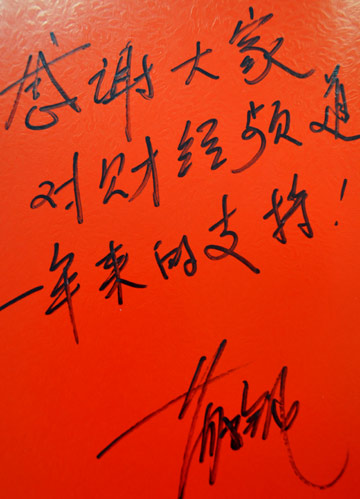 感谢大家
对财经频道
一年来的支持！